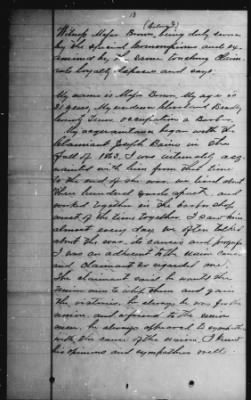 13
(Colored)
Witness Moses Brown, being duly sworn
by the special Commissioner and ex-
amined by the same touching Claim-
ants loyalty deposes and says.
My name is Moses Brown, My age is
31 years, My residence Cleveland Bradley
County Tenn, occupation a Barber.
My acquaintance began with the
Claimant Joseph in the
fall of 1863. I was intimately acq-
uainted with him from that time
to the end of the war, we lived about
three hundred yards apart,
worked together in the barber shop
most of the time together. I saw him
almost every day we often talked
about the war, its causes and progress
I was an adherent to the union cause
and claimant so regarded me.
The claimant said he wanted the
union men to whip them and gain
the victories, he always be was for the
union, and opposed to the
men, he always appeared to sympathize
with the cause of the union, I knew
his opinions and sympathies well.